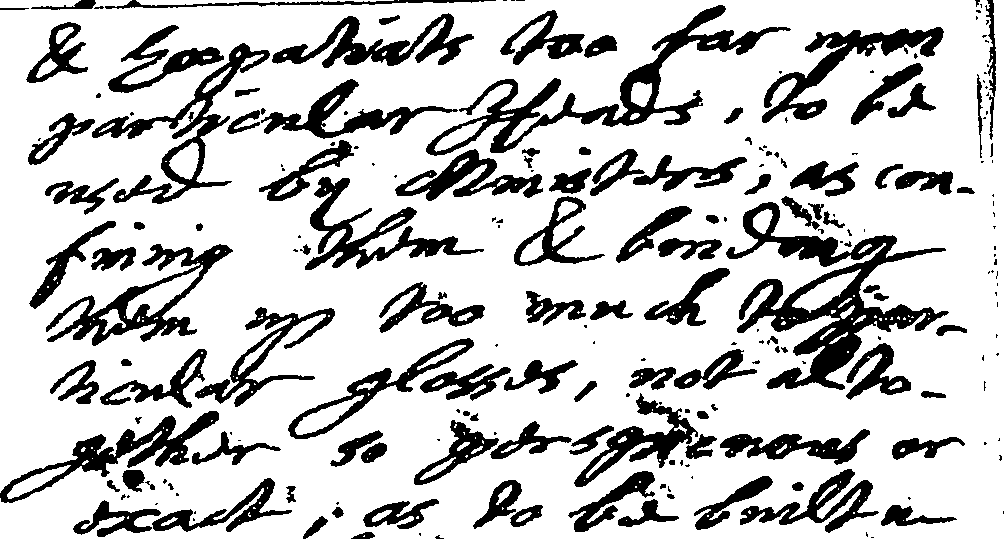 & Expatiats too far upon
particular Heads, to be
used by Ministers, as con-
fining them & binding
them up too much to par-
ticular glosses, not alto-
gether so perspicuous or
exact, as to be built u-